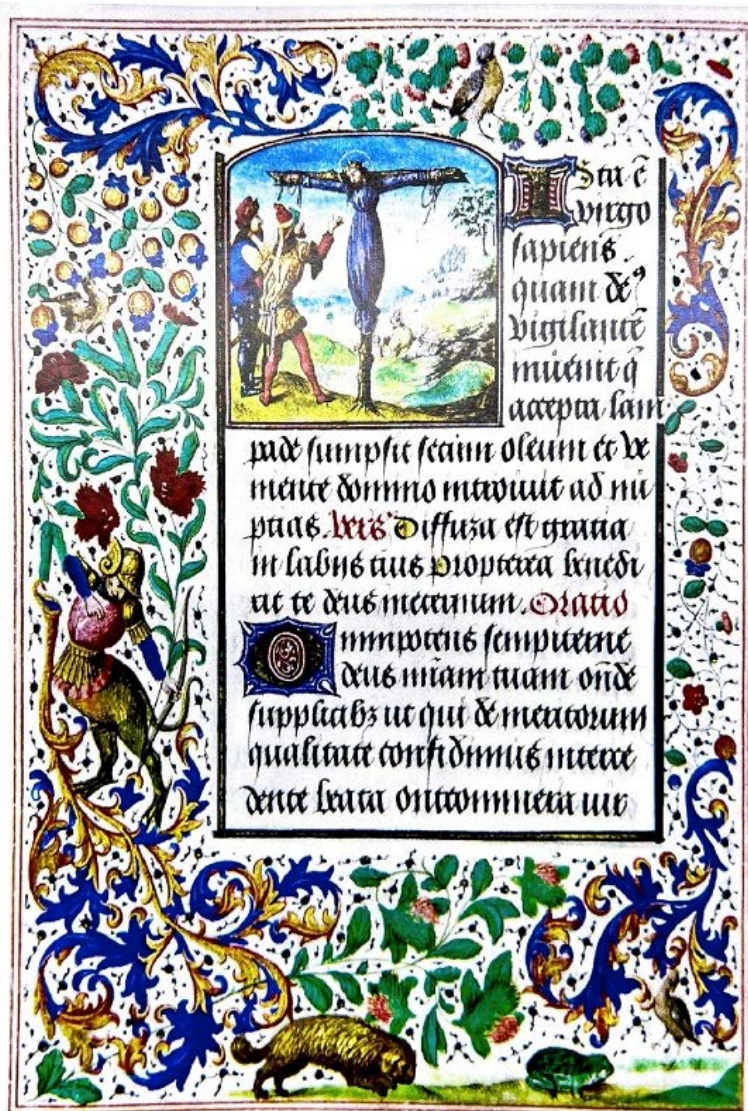 Ista ē
virgo
sapiens
quam dn̄s
vigilantē
inuenit q̄
accepta lam
pade sumpsit secum oleum et ve
niente domino introiuit ad nu
ptias. vers̄ Diffuza est gratia
in labiis tuis Propterea benedi
xit te deus ineternum. Oratio
Omnipotens sempiterne
deus miam tuam onde
supplicibȝ ut qui de meritorum
qualitate confidimus interce
dente beata onttommera uir